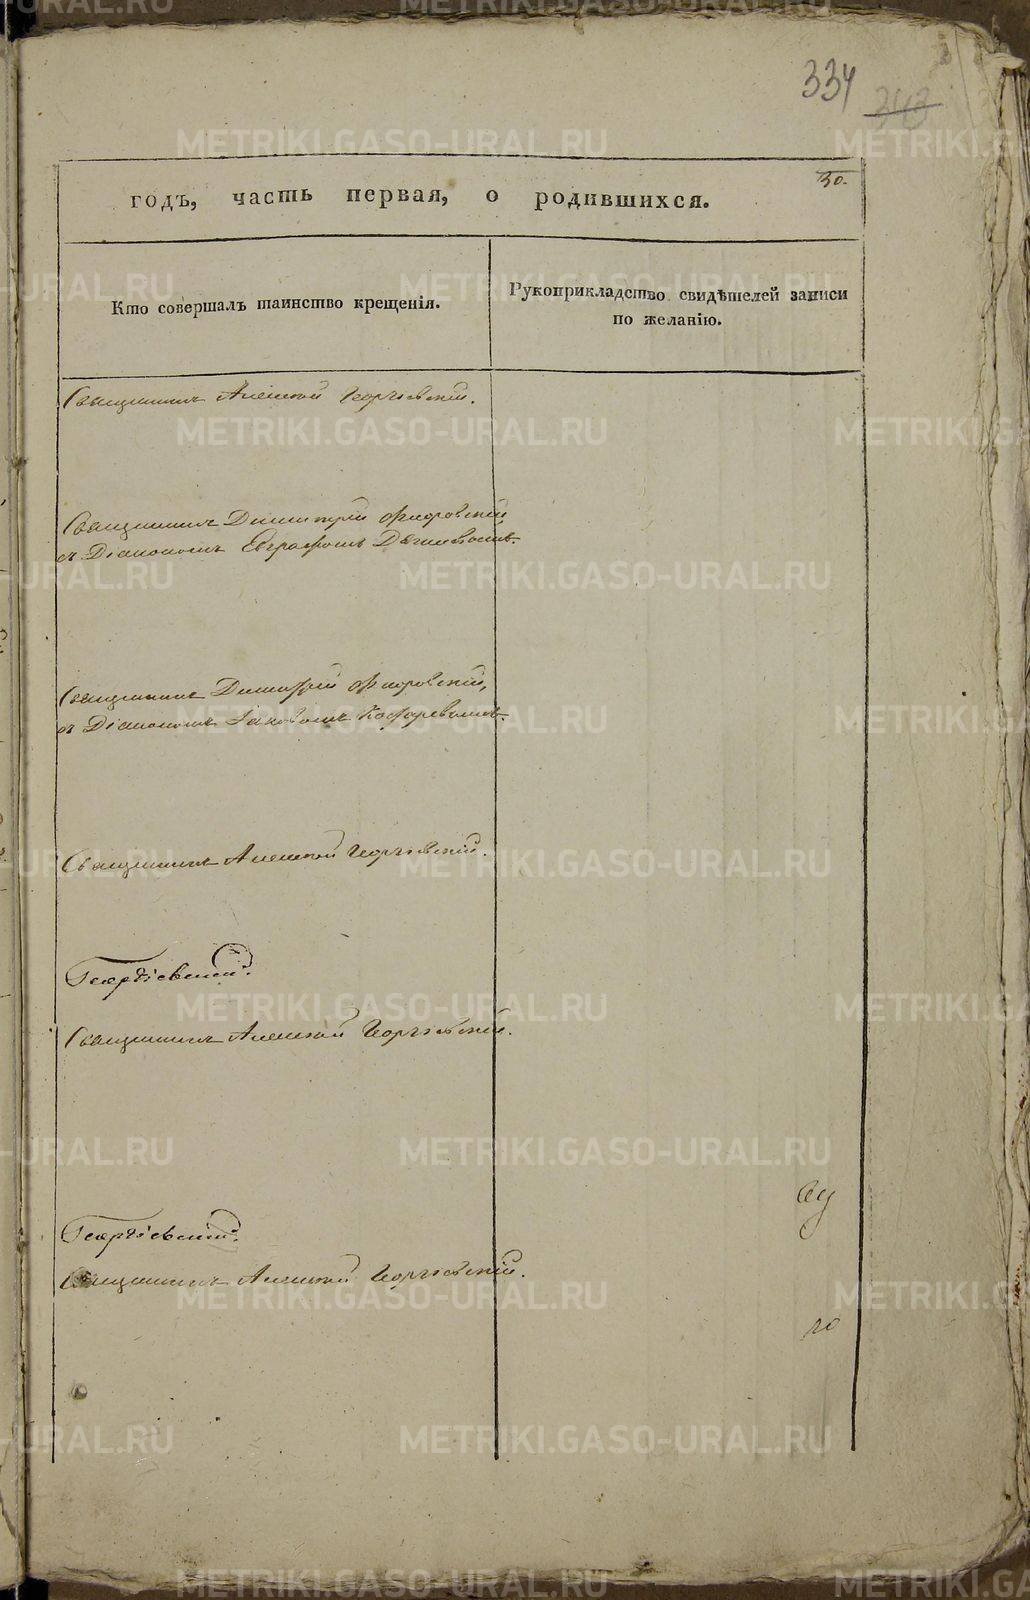 334 343
30.
годъ, часть первая, о родившихся.
Кто совершалъ таинство крещенія.
Рукоприкладство свидѣтелей записи
по желанію.
Священникъ Алексѣй Георгіевскій.
Священникъ Димитрій Флоровскій
съ Діакономъ Евграфомъ Дягилевымъ.
Священникъ Димитрій Флоровскій,
съ Діакономъ Іаковомъ
Священникъ Алексѣй Георгіевскій.
Георгіевскій.
Священникъ Алексѣй Георгіевскій.
Георгіевскій.
Священникъ Алексѣй Георгіевскій.
METRIKI.GASO-URAL.RU